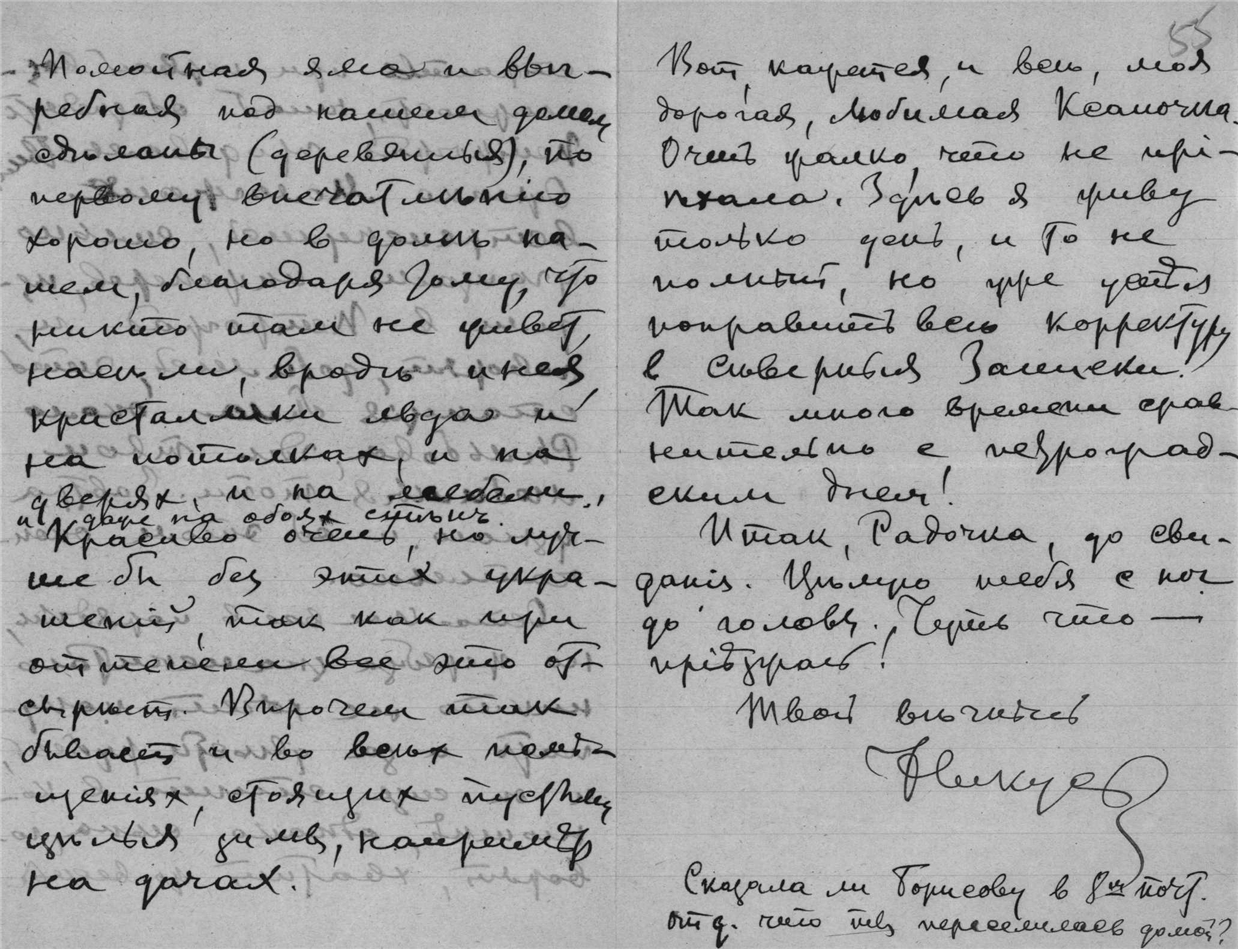 Помойная яма и выг-
ребная под нашим домом
сдѣланы (деревянныя), по
первому впечатлѣнію
хорошо, но в домѣ на-
шем, благодаря тому, что
никто там не живет,
насѣли, вродѣ инея,
кристаллики льда и
на потолках, и на
дверях, и на мебели,
и даже на обоях стѣнъ.
Красиво очень, но луч-
ше бы без этих укра-
шеній, так как при
оттепели все это от-
сырѣет. Впрочем так
бывает и во всѣх помѣ-
щеніях, стоящих пустыми
цѣлыя зимы, напримѣр
на дачах.
55
Вот, кажется, и все, моя
дорогая, любимая Ксаночка.
Очень жалко, что не прі-
ѣхала. Здѣсь я живу
только день, и то не
полный, но уже успѣл
поправить всю корректуру
в Сѣверныя Записки.
Так много времени срав-
нительно с петроград-
ским днем!
Итак, Радочка, до сви-
данія. Цѣлую тебя с ног
до головы. Чуть что —
пріѣзжай!
Твой вѣчный
Никуев
Сказала ли Борисову в 8м почт.
отд. что ты переселилась домой?